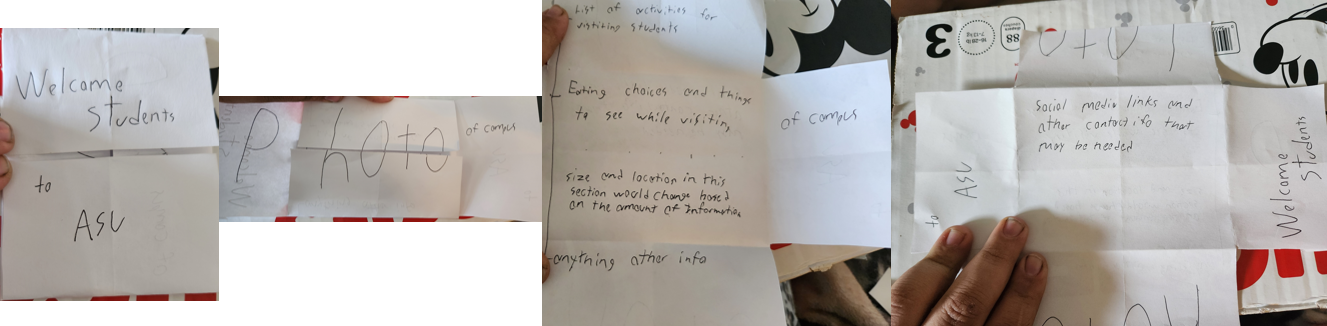 Welcome
Students
to
ASU
Photo
of campus
List of activities for
visitiing students
Eating choices and things
to see while visiting
of campus
size and location in this
section would change based
on the amount of Information
anything other info
3
88
Social media links and
other contact ifo that
may be needed
to
ASU
Welcome
Students